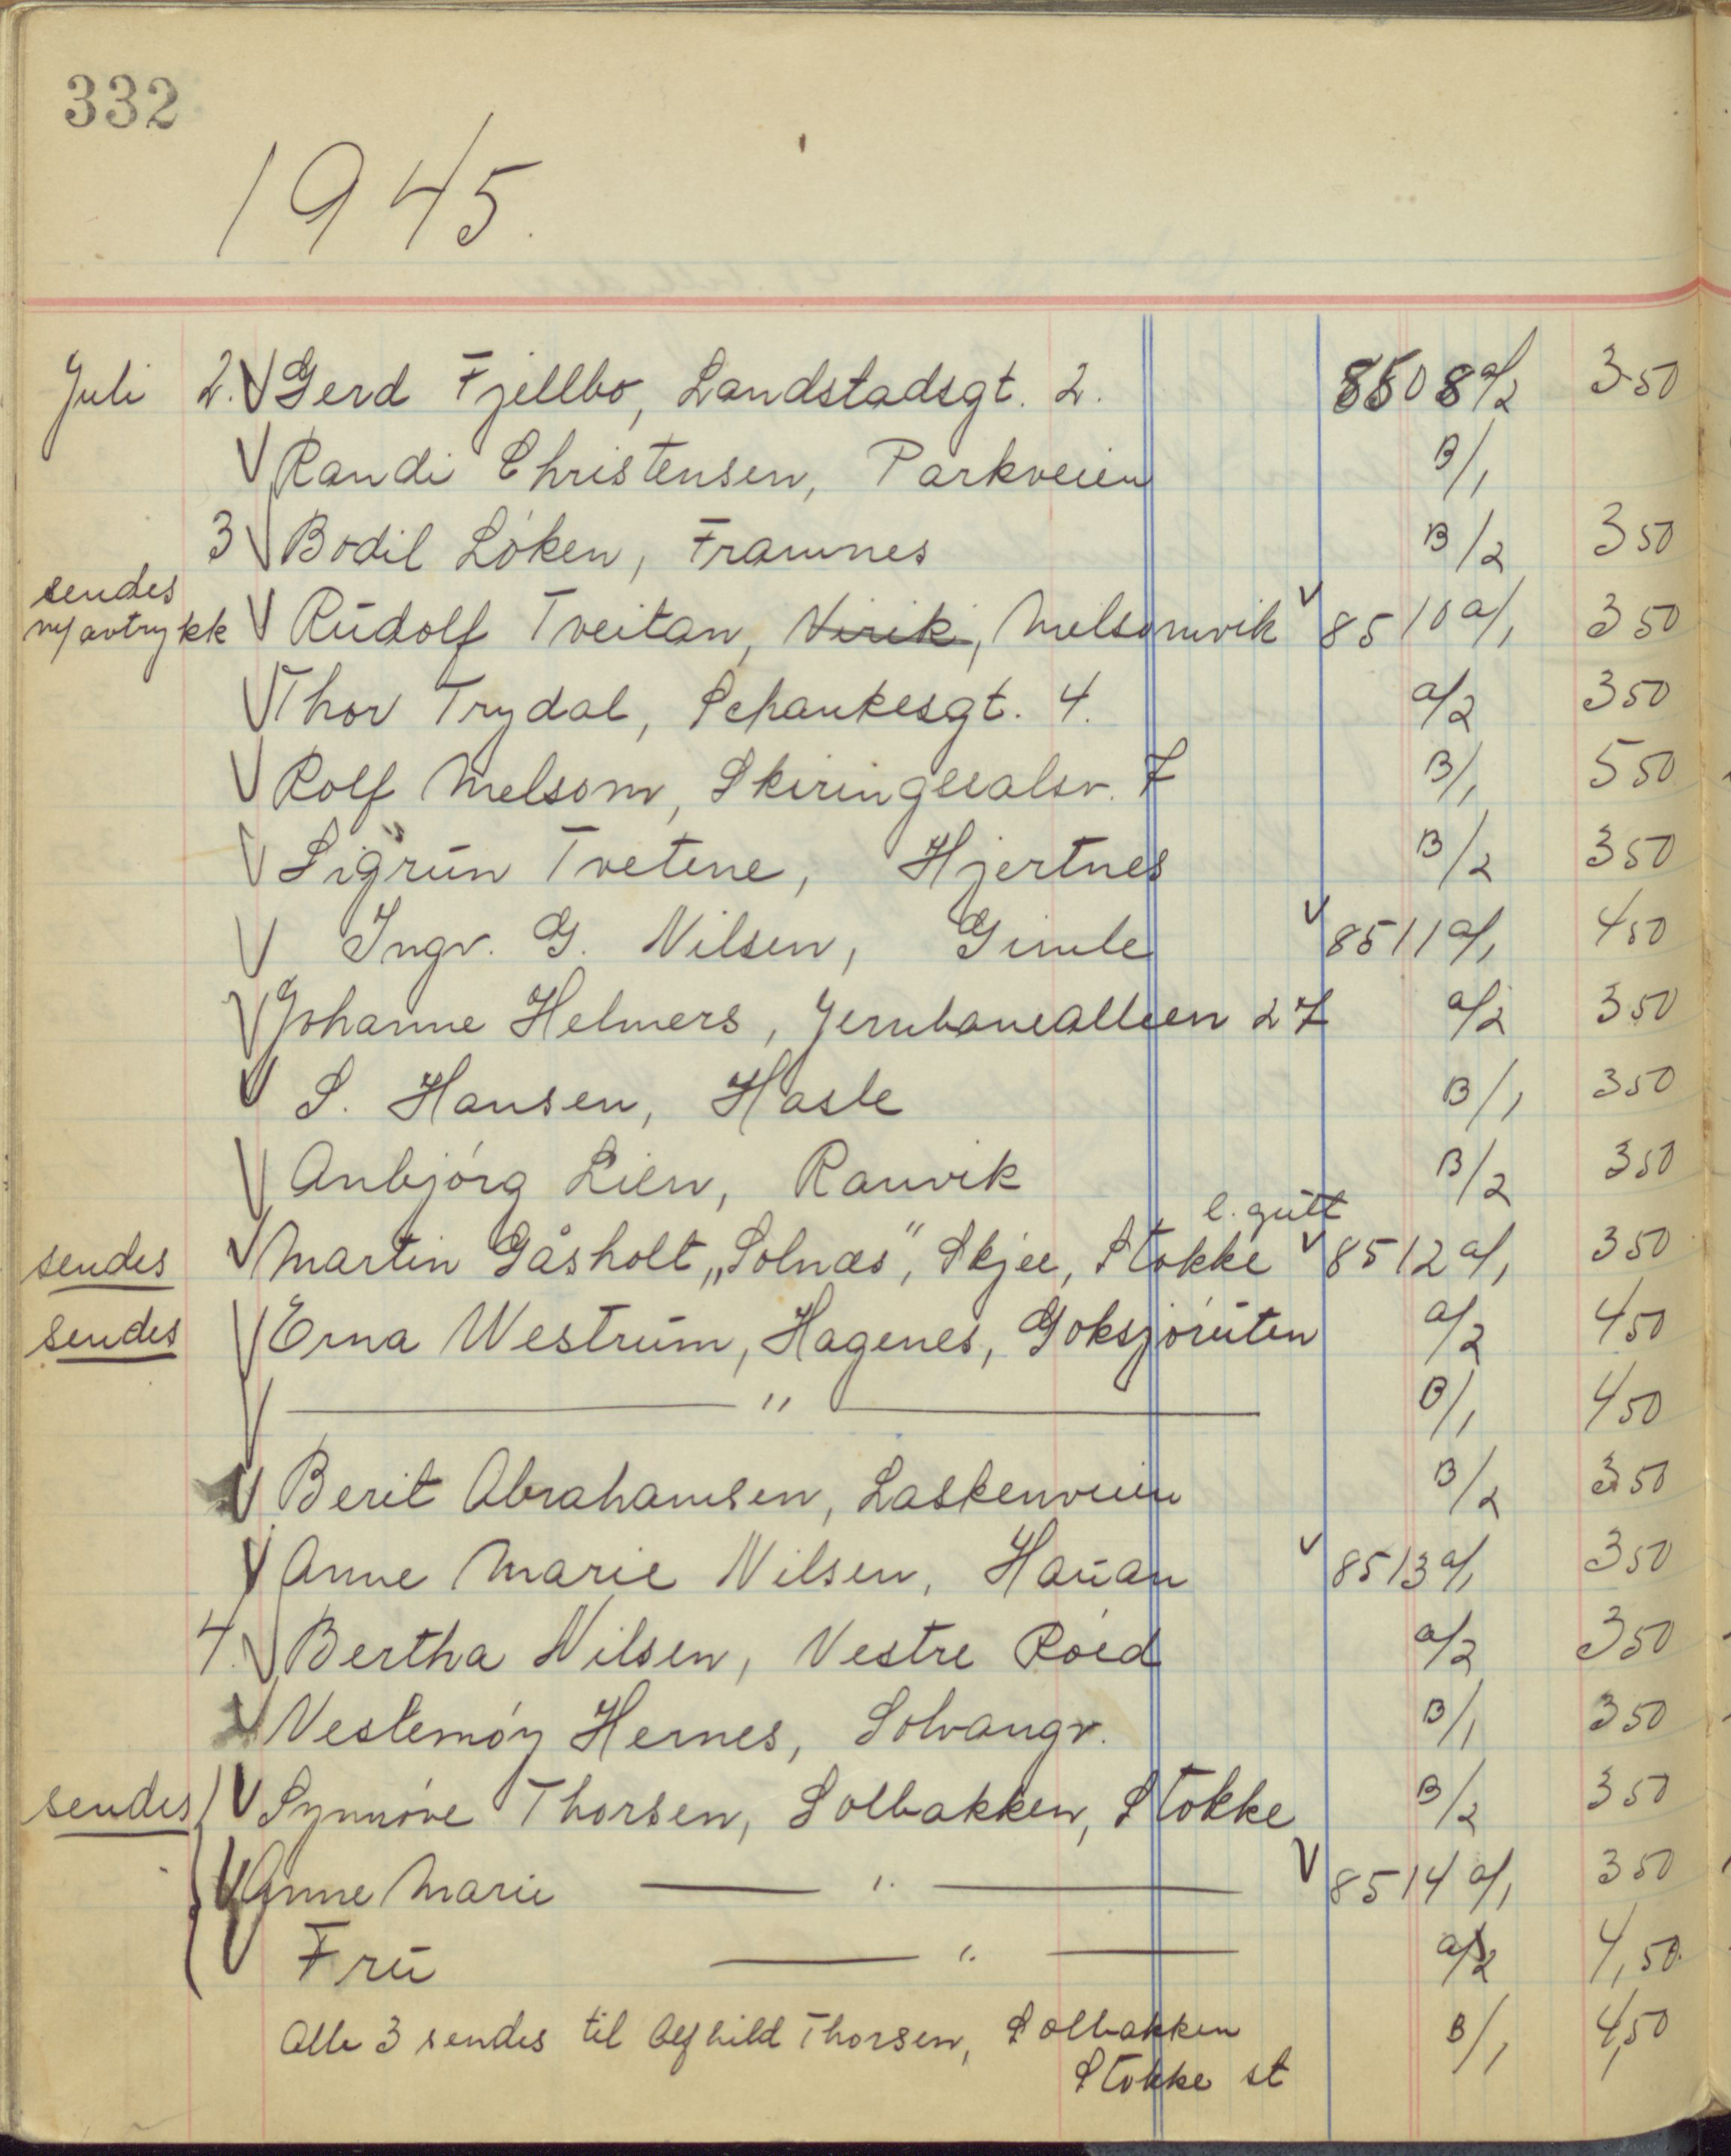 332
1945.
Juli 2. V Gerd Fjellbo, Landstadsgt. 2. 8508 a/2 3 50
V Randi Christensen, Parkveien B/1
3 V Bodil Lóken, Framnes B/2 3 50
sendes
m/avtrykk V Rudolf Tveitan, Virik, Melsomvik V 8510 a/1 3 50
V Thor Trydal, Schankesgt. 4. a/2 3 50
V Rolf Melsom, Skiringssalsv. 7 B/1 5 50
V Sigrun Tvetene, Hjertnes B/2 3 50
V Ingv. G. Nilsen, Gimle V 8511 a/1 4 50
V Johanne Helmers, Jernbanealleen 27 a/2 3 50
V S. Hansen, Hasle B/1 3 50
V Anbjórg Lien, Ranvik B/2 3 50
l. gutt
sendes V Martin Gåsholt, „Solnæs", Skjee, Stokke V 8512 a/1 3 50
sendes V Erna Westrum, Hagenes, Goksjóruten a/2 4 50
V — " — B/1 4 50
V Berit Abrahamsen, Laskenveien B/2 3 50
V Anne Marie Nilsen, Hauan V 8513 a/1 3 50
4. V Bertha Nilsen, Vestre Róed a/2 3 50
V Veslemóy Hernes, Solvangv. B/1 3 50
sendes V Synnóve Thorsen, Solbakken, Stokke B/2 3 50
V Anne Marie — " — V 8514 a/1 3 50
V Fru — " — a/2 4,50
Alle 3 sendes til Alfhild Thorsen, Solbakken B/1 4,50
Stokke st